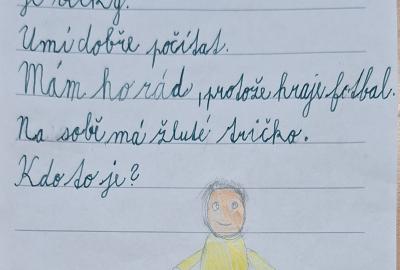 je velký.
Umí dobře počítat.
Mám ho rád, protože hraje fotbal.
Na sobě má žluté tričko.
Kdo to je?